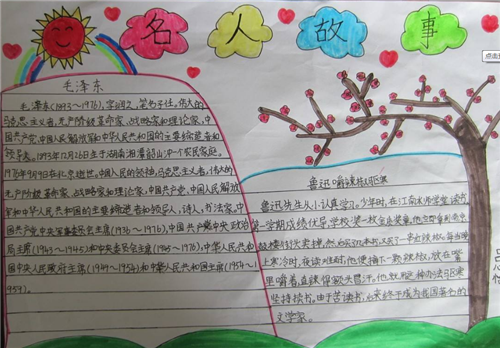 名人故事
毛泽东
毛泽东(1893~1976),字润之,笔名子任。伟大的
马克思主义者,无产阶级革命家、战略家和理论家,中
国共产党、中国人民解放军和中华人民共和国的主要缔造者和
领导者。1893年12月26日生于湖南湘潭韶山冲一个农民家庭。
1976年9月9日在北京逝世。中国人民的领袖,马克思主义者,伟大的
无产阶级革命家、战略家和理论家,中国共产党、中国人民解放
军和中华人民共和国的主要缔造者和领导人,诗人,书法家。中
国共产党中央军事委员会主席(1936~1976),中国共产党中央政治
局主席(1943~1945)和中央委员会主席(1945~1976),中华人民共和
国中央人民政府主席(1949~1954)和中华人民共和国主席(1954~1
959)。
鲁迅嚼辣椒驱寒
鲁迅先生从小认真学习。少年时,在江南水师学堂读书,
第一学期成绩优异,学校奖一枚金质奖章。他立即拿到南京
鼓楼街头卖掉,然后买了几本书,又买了一串红辣椒。每当晚
上寒冷时,夜读难耐,他便摘下一颗辣椒,放在嘴
里嚼着,直辣得额头冒汗。他就用这种办法驱寒
坚持读书。由于苦读书,后来终于成为我国著名的
文学家。
点击